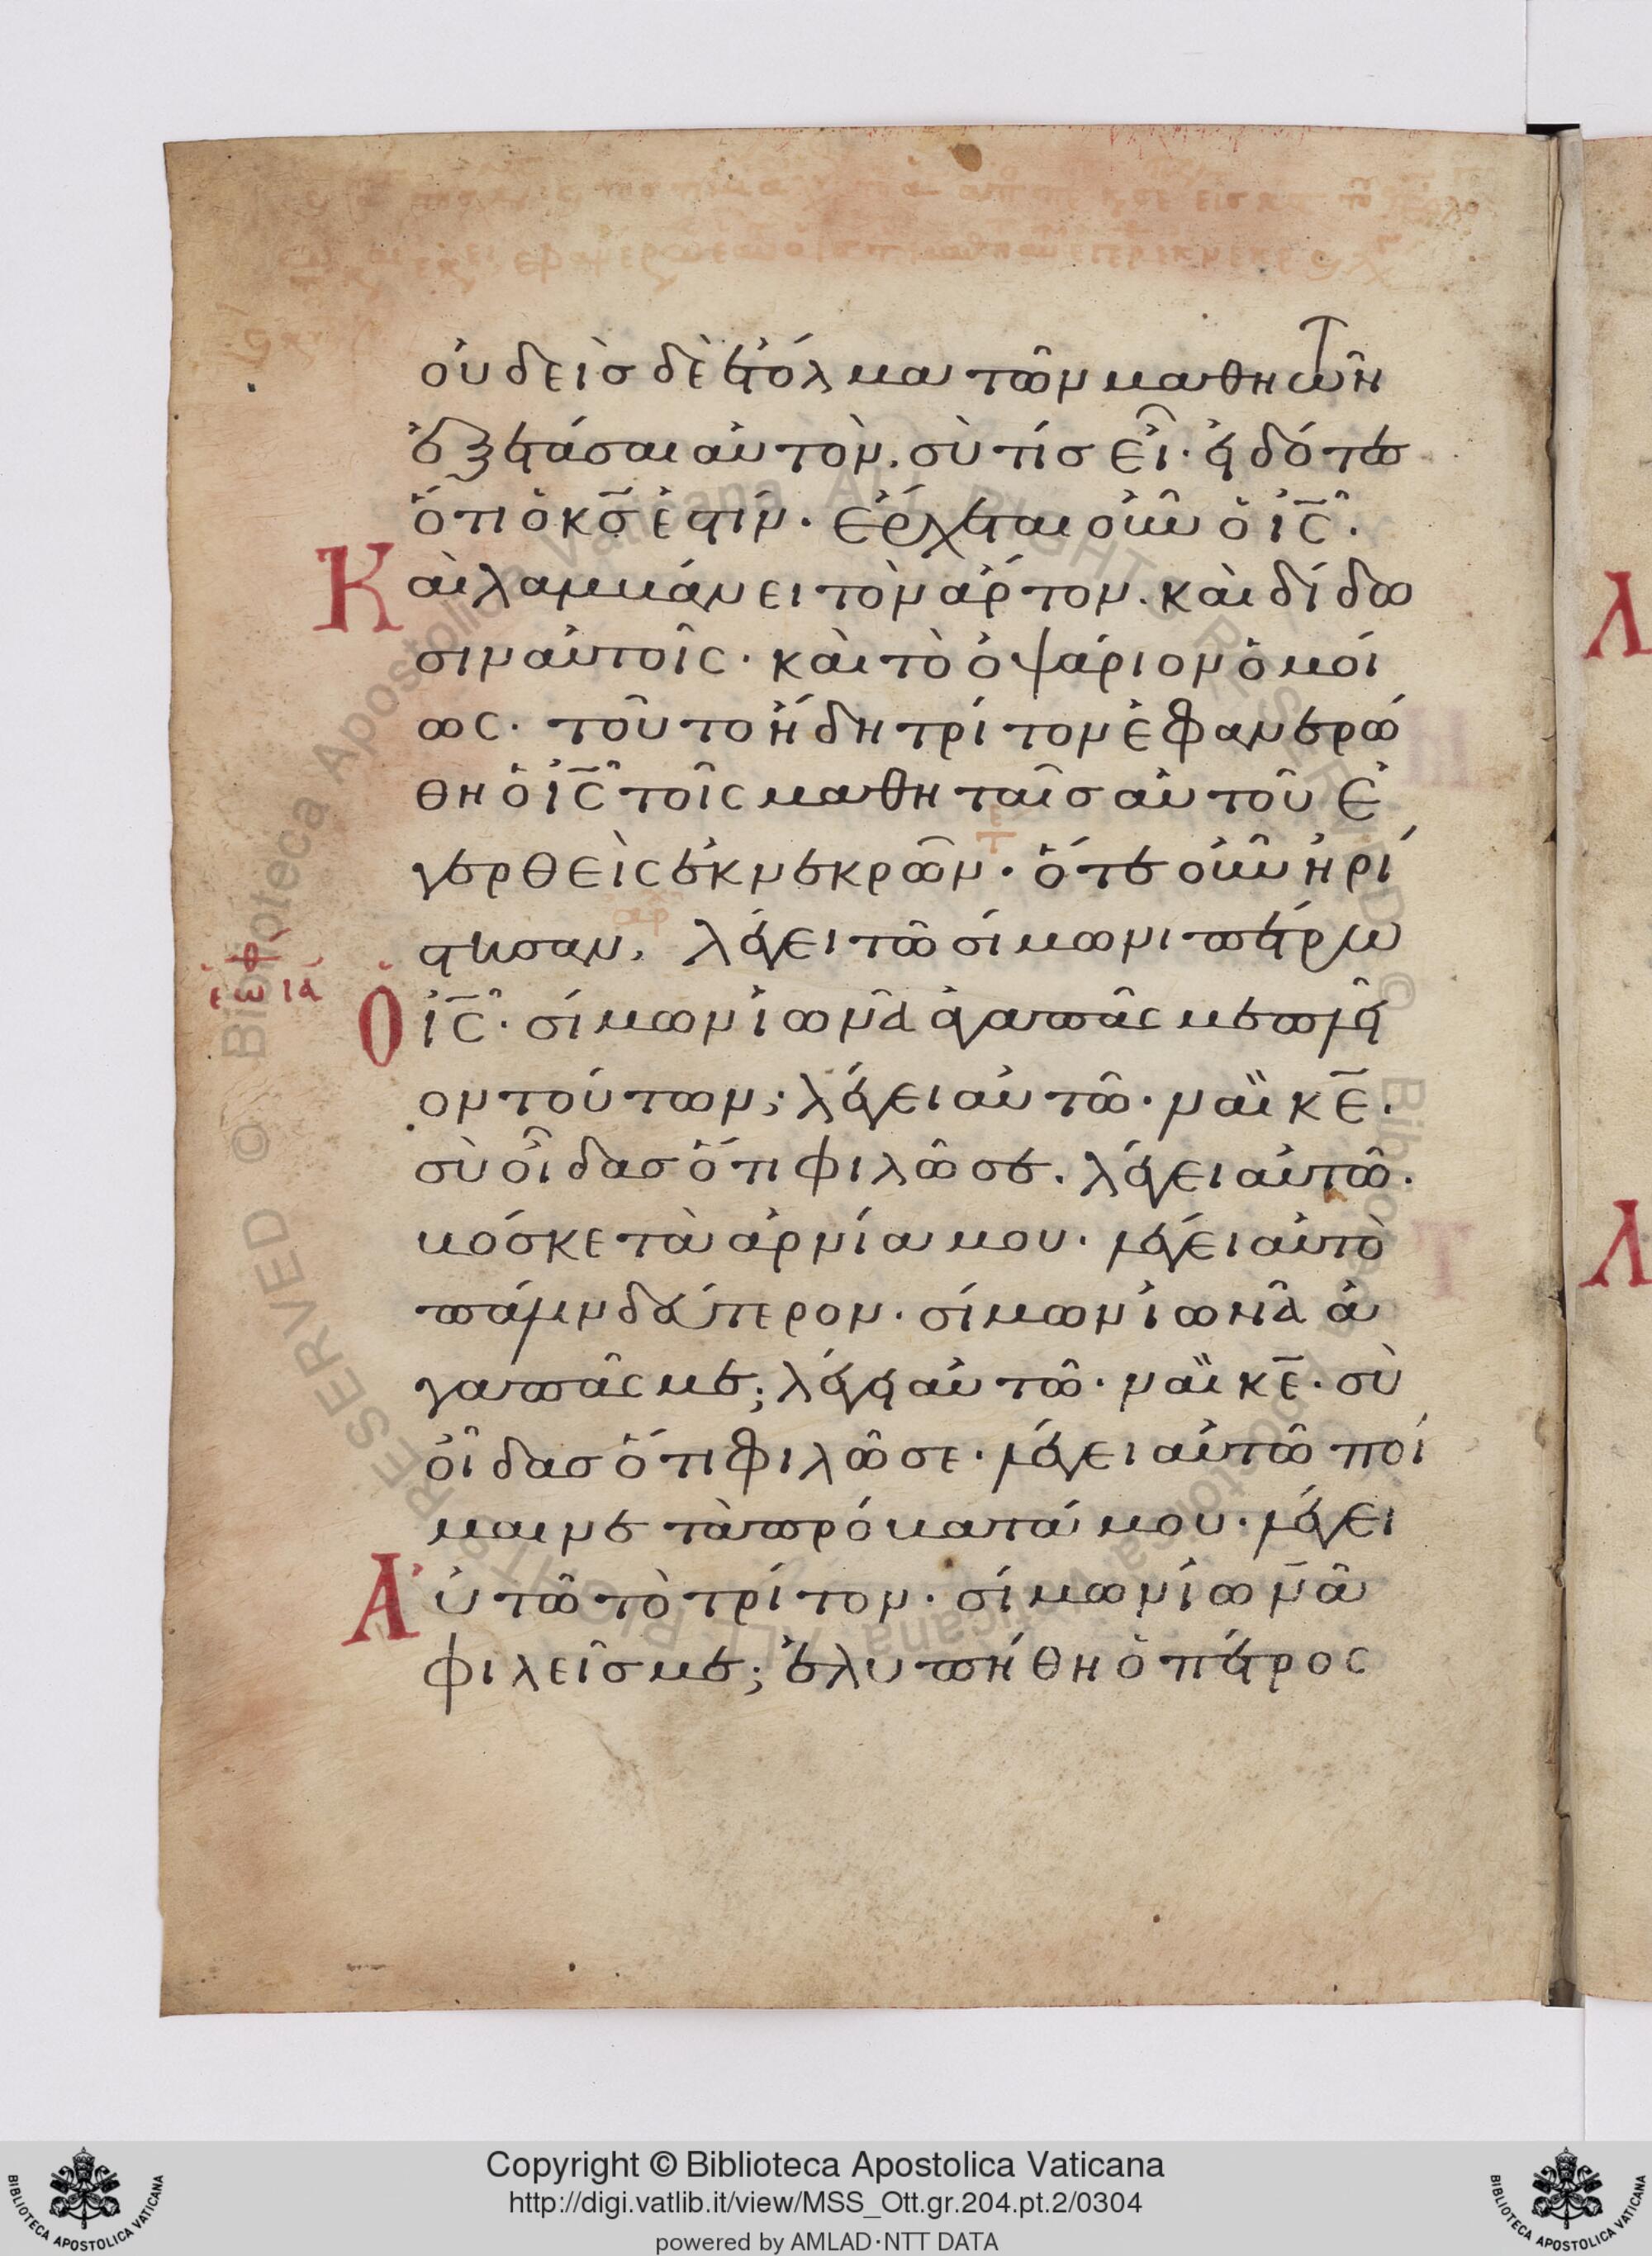 οὐδεὶσ δὲ ἐτόλμα τῶν μαθητῶν
ἐξετάσαι αὐτὸν. σὺ τίσ εἶ· εἰδότες
ὅτι ὁ κ̅σ̅ ἐστίν· ἔρχεται οὖν ὁ ι̅ς̅·
Καὶ λαμβάνει τὸν ἄρτον. καὶ δίδω
σιν αὐτοῖς· καὶ τὸ ὀψάριον ὁμοί
ως· τοῦτο ἤδη τρίτον ἐφανερώ
θη ὁ ι̅ς̅ τοῖς μαθηταῖσ αὐτοῦ ἐ
γερθεὶς ἐκ νεκρῶν· ὅτε οὖν ἠρί
στησαν, λέγει τῶ σίμωνι πέτρω
Ὁ ι̅ς̅· σίμων ἰωνᾶ ἀγαπᾶς με πλεῖ
ον τούτων; λέγει αὐτῶ· ναῒ κ̅ε̅·
σὺ οἶδασ ὅτι φιλῶ σε. λέγει αὐτῶ·
βόσκε τὰ ἀρνία μου· λέγει αὐτὸ
πάλιν δεύτερον· σίμων ἰωνᾶ ἀ
γαπᾶς με; λέγει αὐτῶ· ναῒ κ̅ε̅· σὺ
οἶδασ ὅτι φιλῶ σε· λέγει αὐτῶ ποί
μαινε τὰ πρόβατά μου· λέγει
Αὐτῶ τὸ τρίτον· σίμων ἰωνᾶ
φιλεῖσ με; ἐλυπήθη ὁ πέτρος
Copyright © Biblioteca Apostolica Vaticana
http://digi.vatlib.it/view/MSS_Ott.gr.204.pt.2/0304
powered by AMLAD·NTT DATA